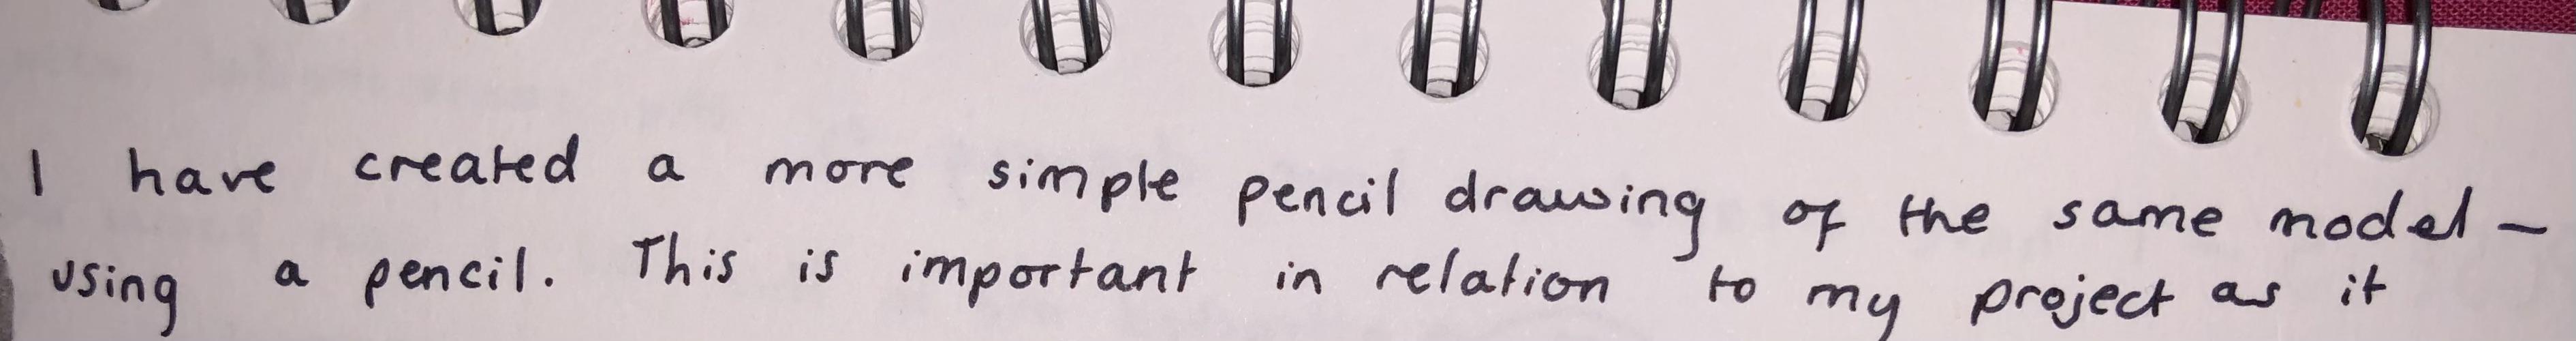 I have created a more simple pencil drawing of the same model -
using a pencil. This is important in relation to my project as it